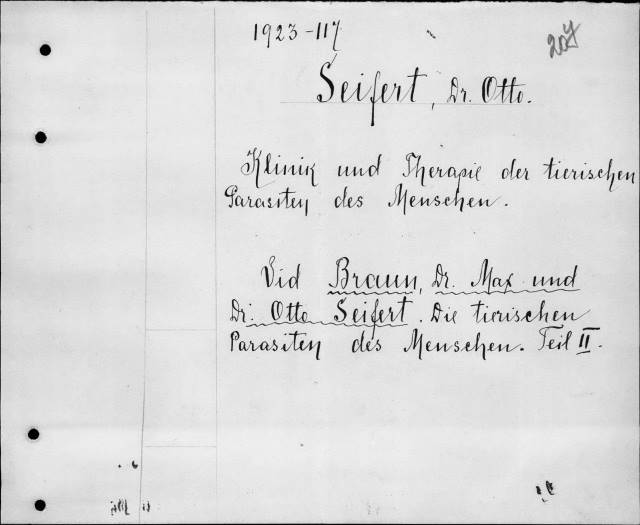 1923-117
207
Seifert, Dr. Otto.
Klinik und Therapie der tierischen
Parasiten des Menschen.
Vid Braun, Dr. Max und
Dr. Otto Seifert. Die tierischen
Parasiten des Menschen. Teil II.